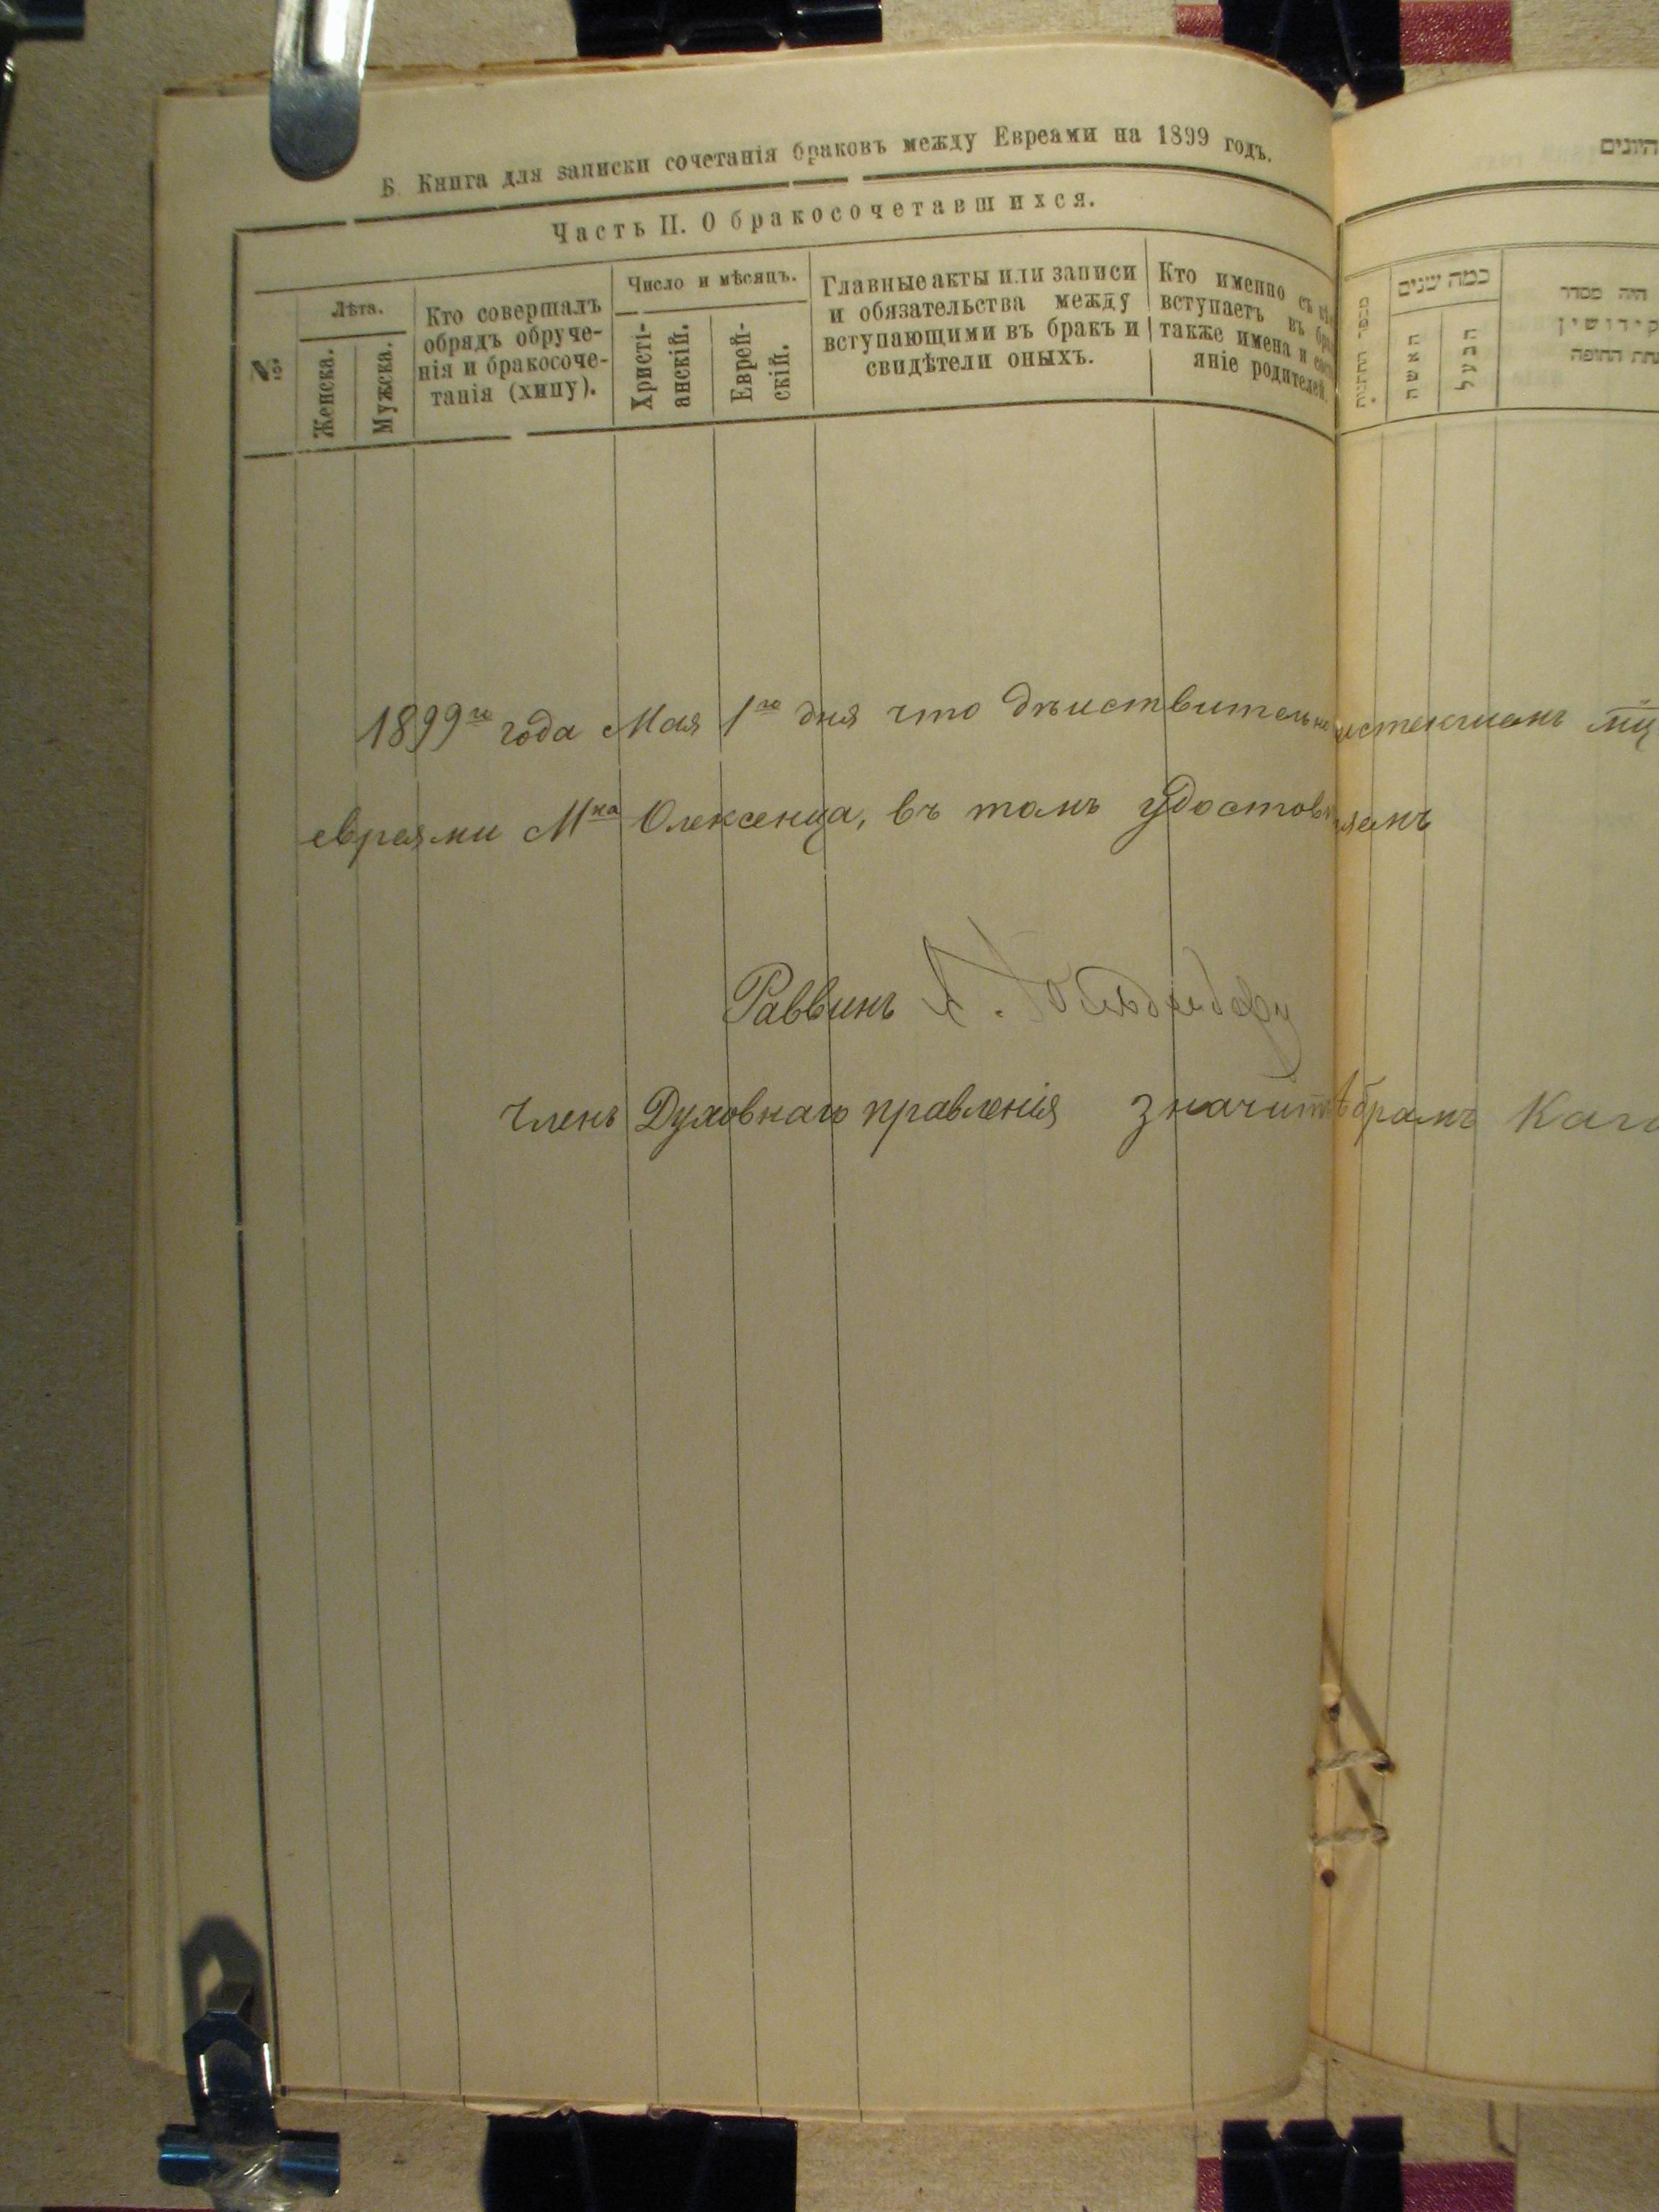 Б. Книга для записки сочетанія браковъ между Евреями на 1899 годъ.
Часть II. О бракосочетавшихся.
№
Лѣта.
Женска.
Мужска.
Кто совершалъ
обрядъ обруче-
нія и бракосоче-
танія (хипу).
Число и мѣсяцъ.
Христі-
анскій.
Еврей-
скій.
Главные акты или записи
и обязательства между
вступающими въ бракъ и
свидѣтели оныхъ.
Кто именно съ
вступаетъ въ
также имена и
яніе родителей.
כמה שנים
האשה
הבעל
היה מסדר
קידושין
החופה
1899го года Мая 1го дня что дѣйствительно истекшемъ
евреями Мка Олексенца, въ томъ удостовѣряемъ
Раввинъ
Членъ Духовнаго правленія